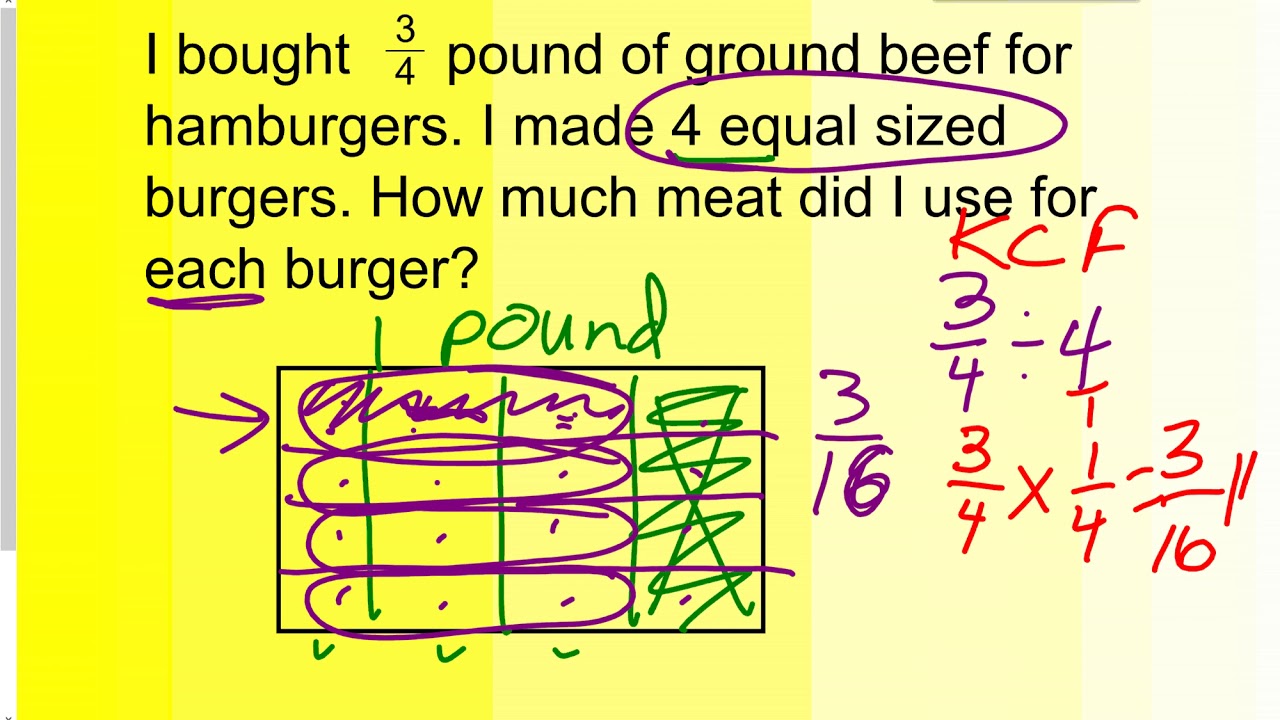 I bought 3/4 pound of ground beef for
hamburgers. I made 4 equal sized
burgers. How much meat did I use for
each burger?
1 pound
3/16
KCF
3/4 ÷ 4/1
3/4 × 1/4 = 3/16 lb